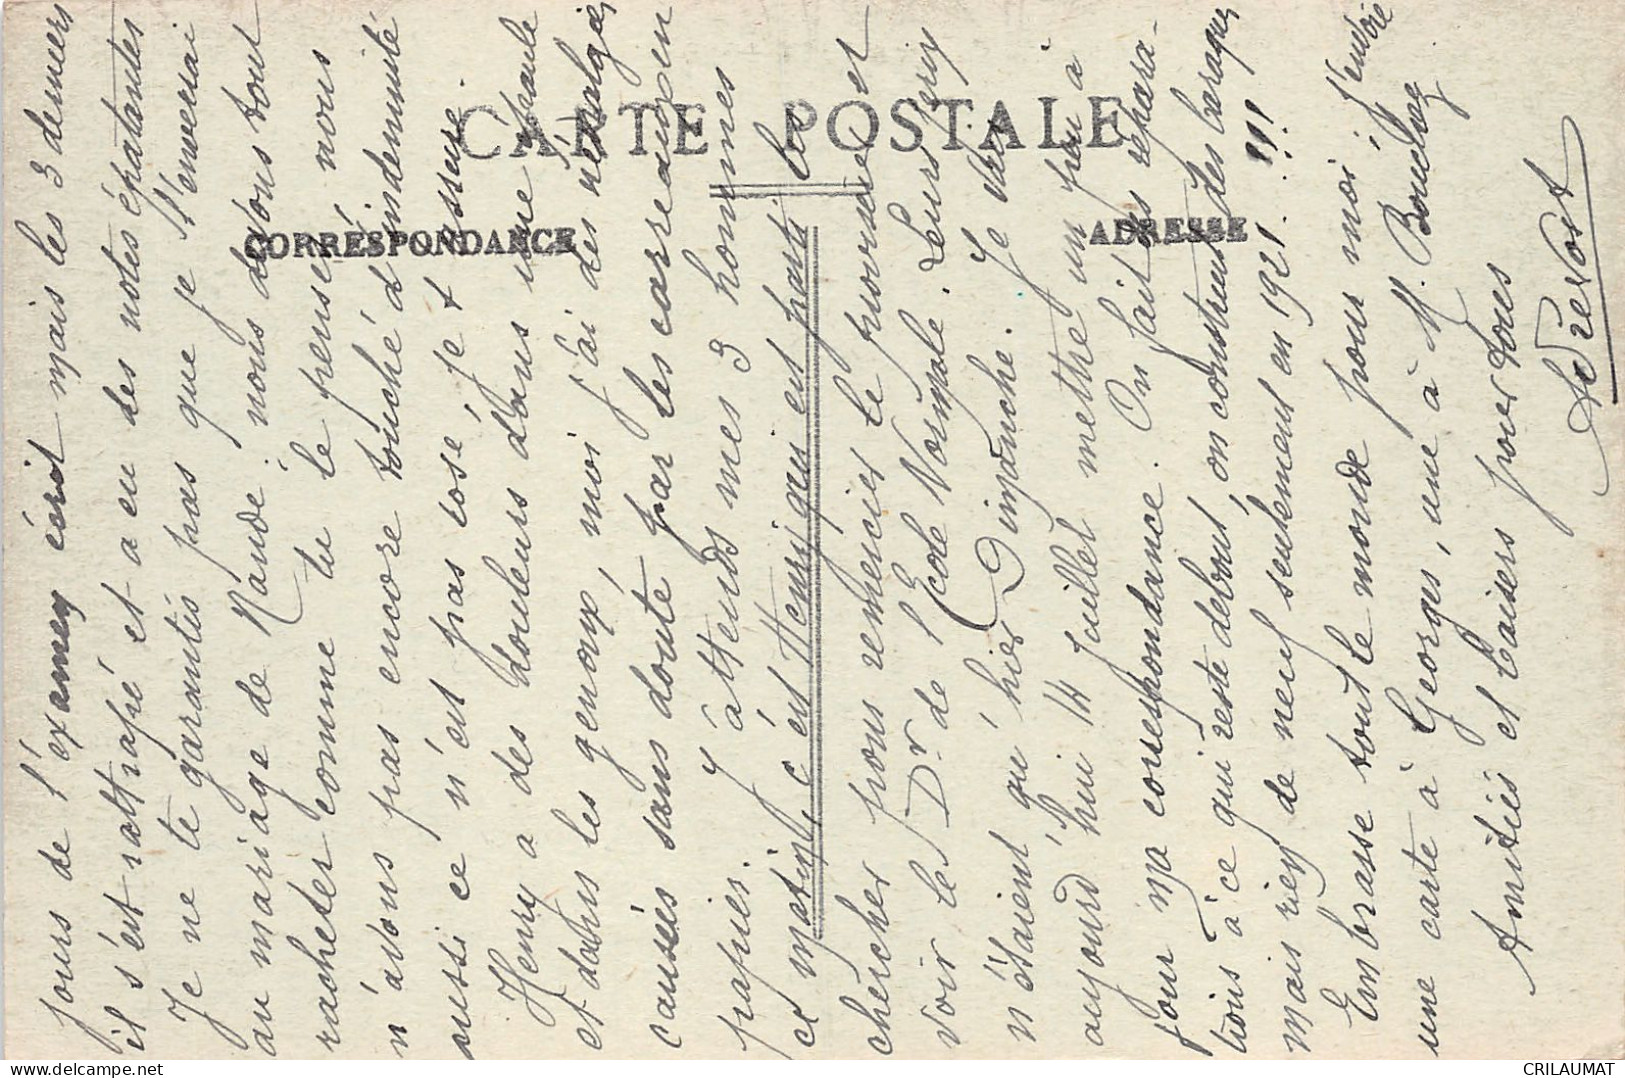 CARTE POSTALE
CORRESPONDANCE
ADRESSE
jours de l'examen écrit mais les 3 derniers
il s'est rattrapé et a eu des notes épatantes
Je ne te garantis pas que je t'enverrai
au mariage de Naudé : nous devons tout
racheter comme tu le penses nous
n'avons pas encore touché d'indemnité
aussi ce n'est pas rose, je t'assure.
Henry a des douleurs dans une épaule
et dans les genoux, moi j'ai des névralgies
causées sans doute par les carreaux en
papier. J'attends mes 3 hommes
ce matin, c'est Henri qui est parti les
chercher pour remercier le proviseur et
voir le Dr de l'Ecole Normale. Leurs prix
n'étaient qu'hier Dimanche. Je vais
aujourd'hui 14 juillet mettre un peu à
jour ma correspondance. On fait des répara-
tions à ce qui reste debout, on construit des baraques
mais rien de neuf seulement en 1921 !!!
Embrasse tout le monde pour moi j'envoie
une carte à Georges, une à M.
Amitiés et baisers pour tous
Prevost
CRILAUMAT